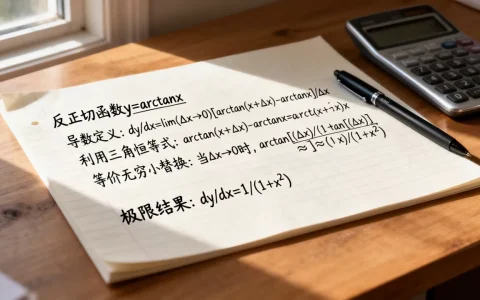 反正切函数y=arctanx
导数定义: dy/dx=lim(Δx→0)[arctan(x+Δx)-arctanx]/Δx
利用三角恒等式: arctan(x+Δx)-arctanx=arct(x+x)x
等价无穷小替换: 当Δx→0时, arctan[(Δx)/(1+tan[(Δx)]
≈]≈(1x)/(1+x²)
极限结果: dy/dx=1/(1+x²)